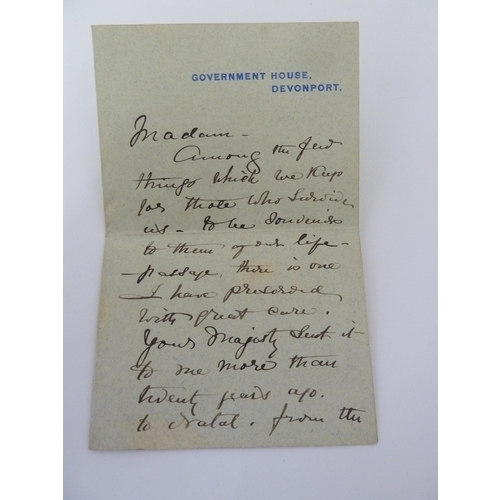 GOVERNMENT HOUSE,
DEVONPORT.
Madam -
Among the few
things which we keep
for those who survive
us - to be souvenirs
to them of our life -
- passage, there is one
I have preserved
with great care.
Your Majesty sent it
to me more than
twenty years ago.
to Natal. from the